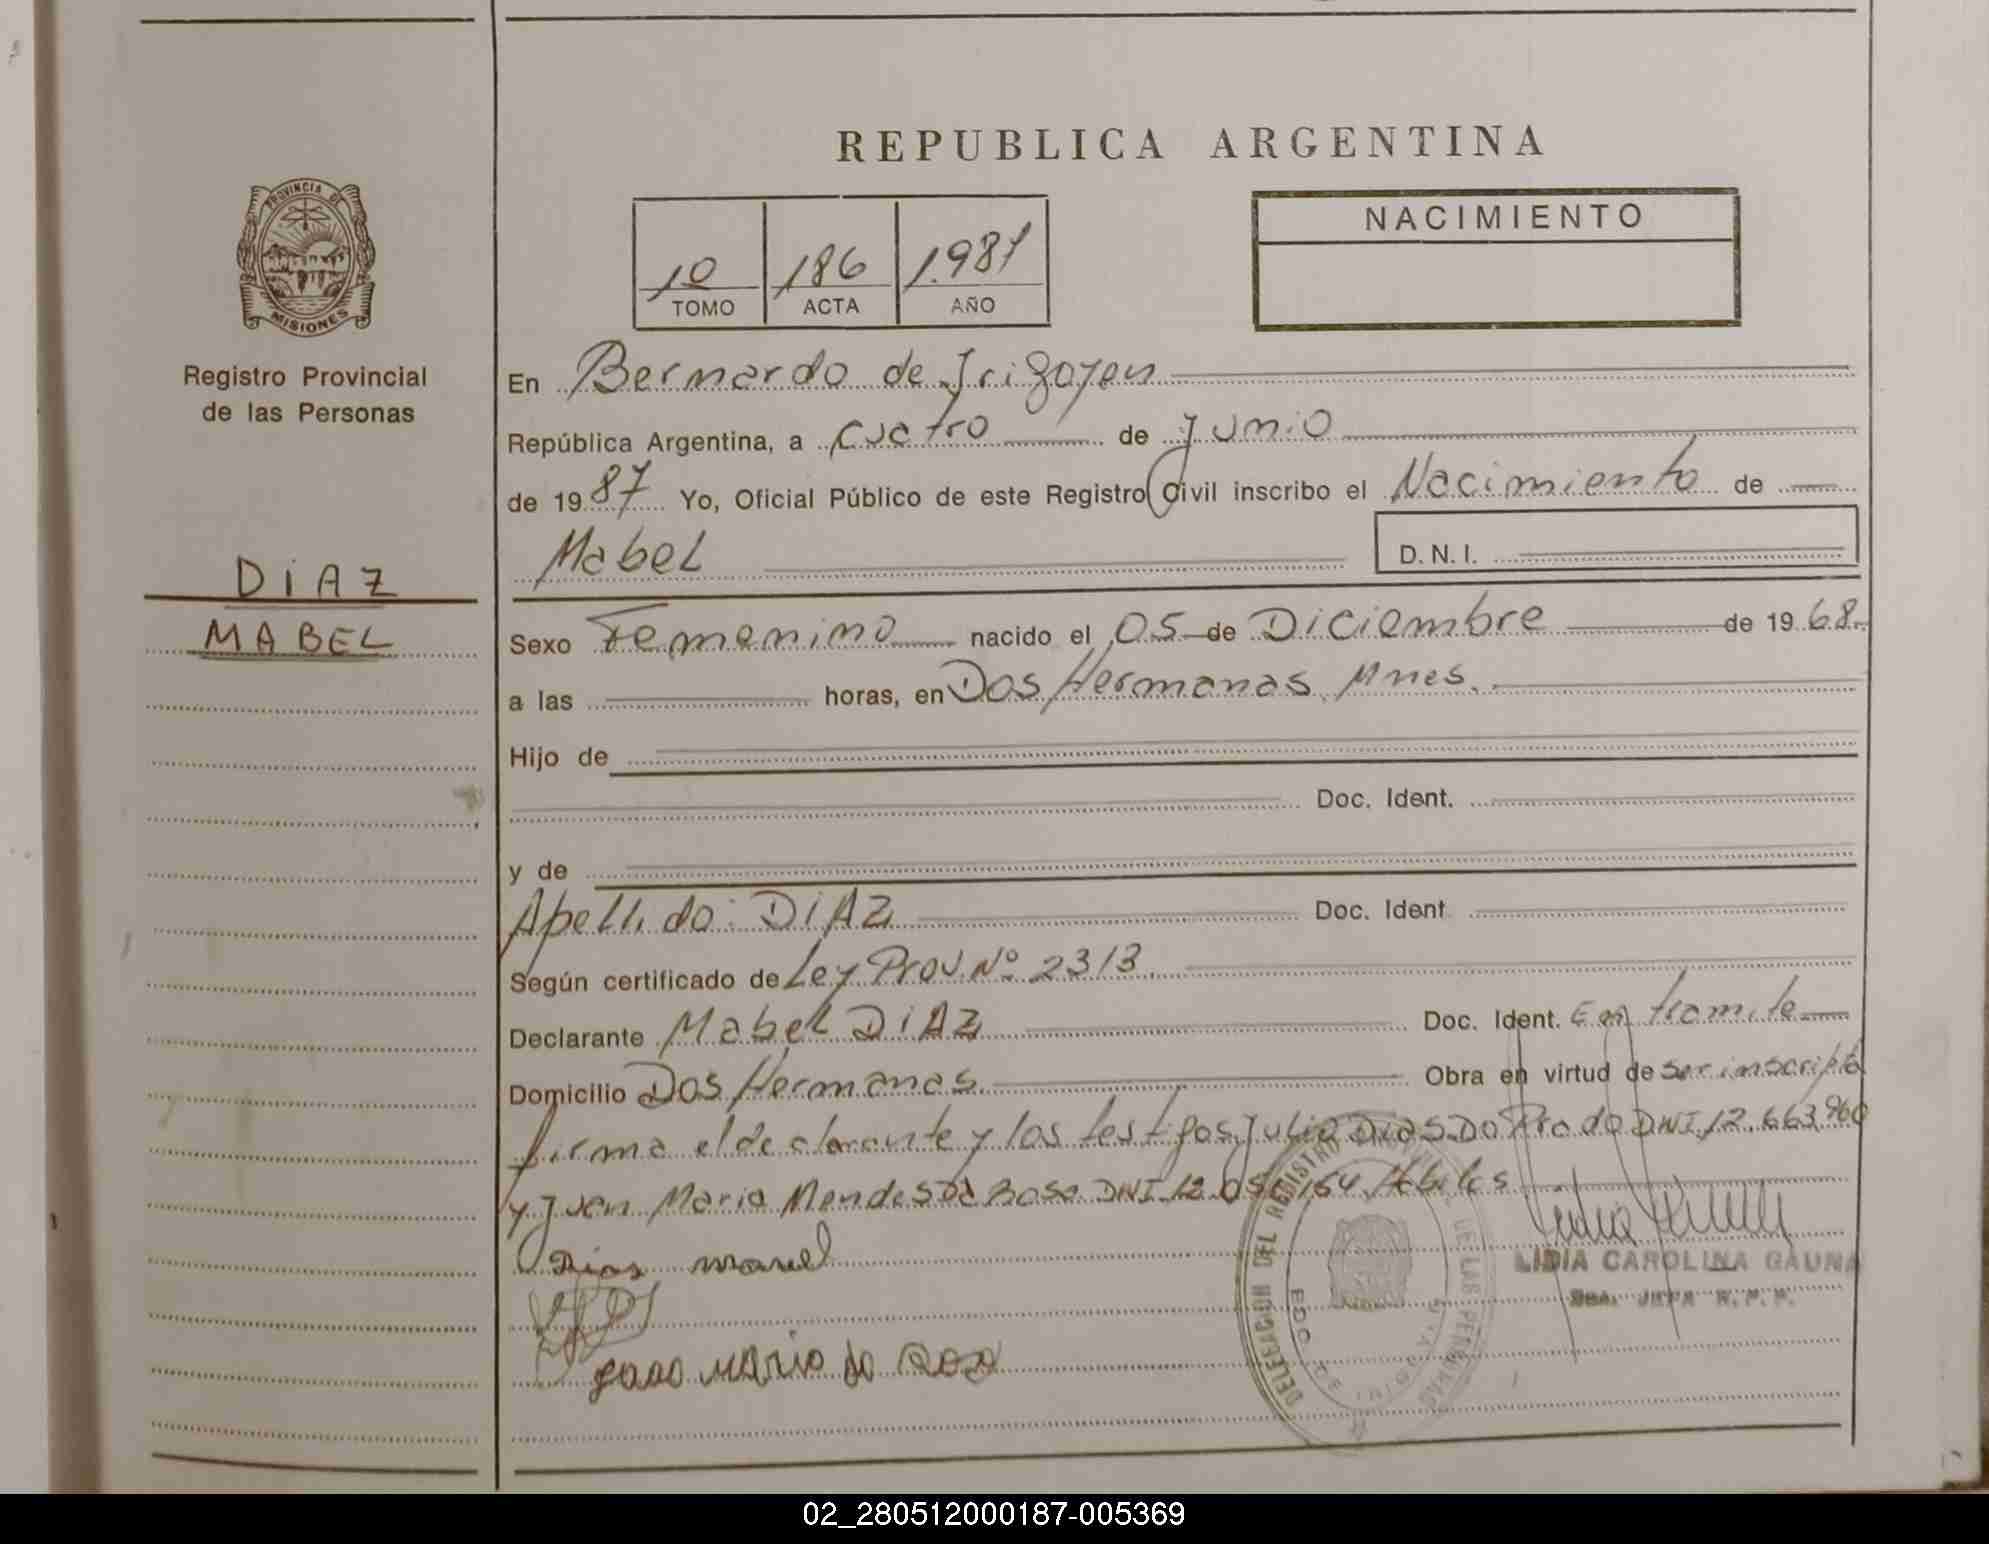 REPUBLICA ARGENTINA
PROVINCIA DE MISIONES
Registro Provincial
de las Personas
DiAZ
MABEL
10 186 1.987
TOMO ACTA AÑO
NACIMIENTO
En Bernardo de Irigoyen
República Argentina, a cuatro de junio
de 1987 Yo, Oficial Público de este Registro Civil inscribo el Nacimiento de
Mabel D.N.I.
Sexo Femenino nacido el 05 de Diciembre de 1968
a las horas, en Dos Hermanas Mnes.
Hijo de
Doc. Ident.
y de
Apellido: DiAZ Doc. Ident
Según certificado de Ley Prov. Nº 2313
Declarante Mabel DiAZ Doc. Ident. En tramite
Domicilio Dos Hermanas. Obra en virtud de ser inscripta
firma el declarante y los testigos Julio Dias Do Prado DNI 12.663.960
y Juan Mario Mendes Da Rosa DNI 12.056,154. Habiles
Dias mavel
João MARio do
DELEGACION DEL REGISTRO DE LAS PERSONAS
LIDIA CAROLINA GAUNA
JEFA R. P. P.
02_280512000187-005369